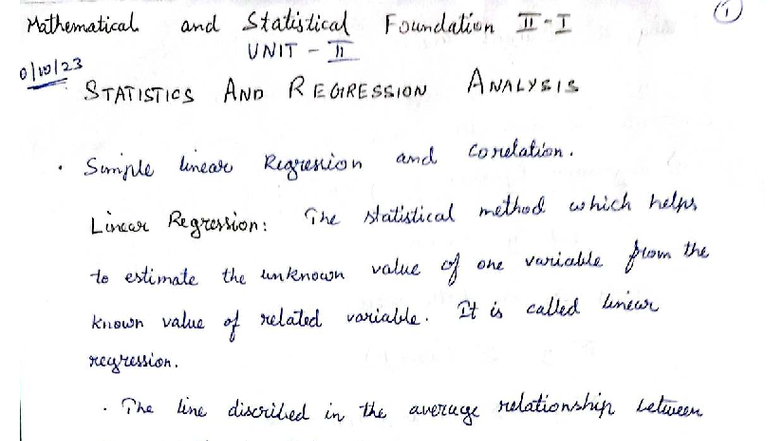 ①
Mathematical and Statistical Foundation II-I
UNIT - II
0/10/23
STATISTICS AND REGRESSION ANALYSIS
· Simple linear Regression and Corelation.
Linear Regression: The statistical method which helps
to estimate the unknown value of one variable from the
known value of related variable. It is called linear
regression.
· The line discribed in the average relationship between